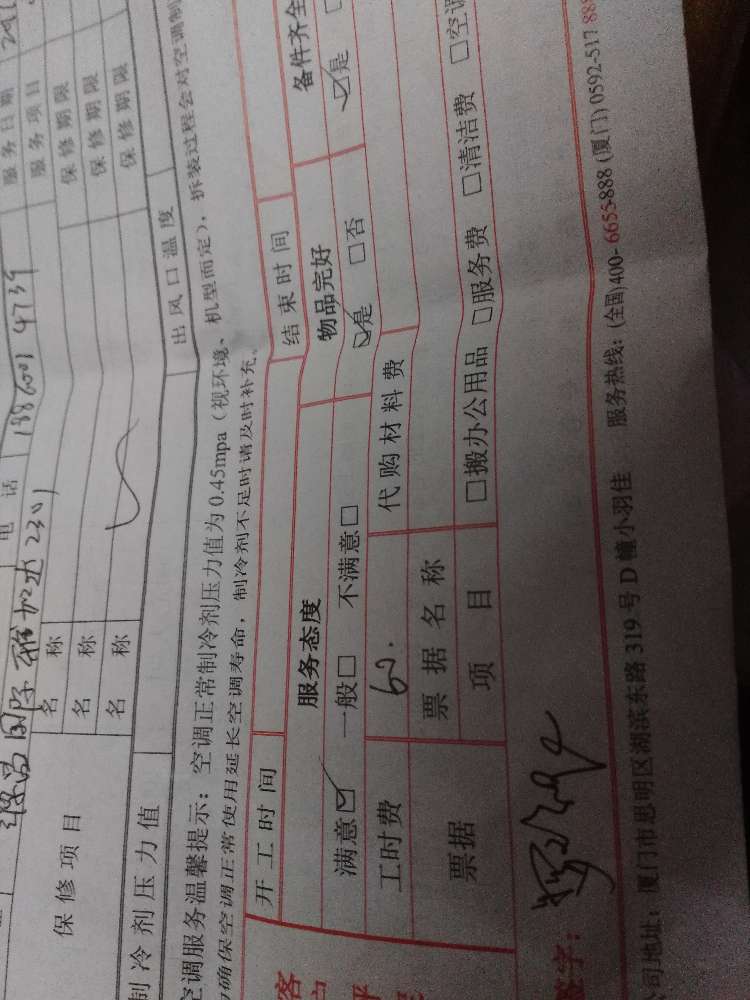 国际雅加达2301 电话 18860014739 服务日期
服务项目
保修项目 名称 保修期限
名称 保修期限
名称 保修期限
制冷剂压力值 出风口温度
空调服务温馨提示：空调正常制冷剂压力值为0.45mpa（视环境、机型而定），拆装过程会对空调制
确保空调正常使用延长空调寿命，制冷剂不足时请及时补充。
开工时间 结束时间
服务态度 物品完好 备件齐全
满意☑ 一般□ 不满意□ ☑是 □否 ☑是
工时费 60. 代购材料费
票据 票据名称
项目 □搬办公用品 □服务费 □清洁费 □空调
签字：
司地址：厦门市思明区湖滨东路319号D幢小羽佳 服务热线：(全国)400-6655-888 (厦门)0592-517 888